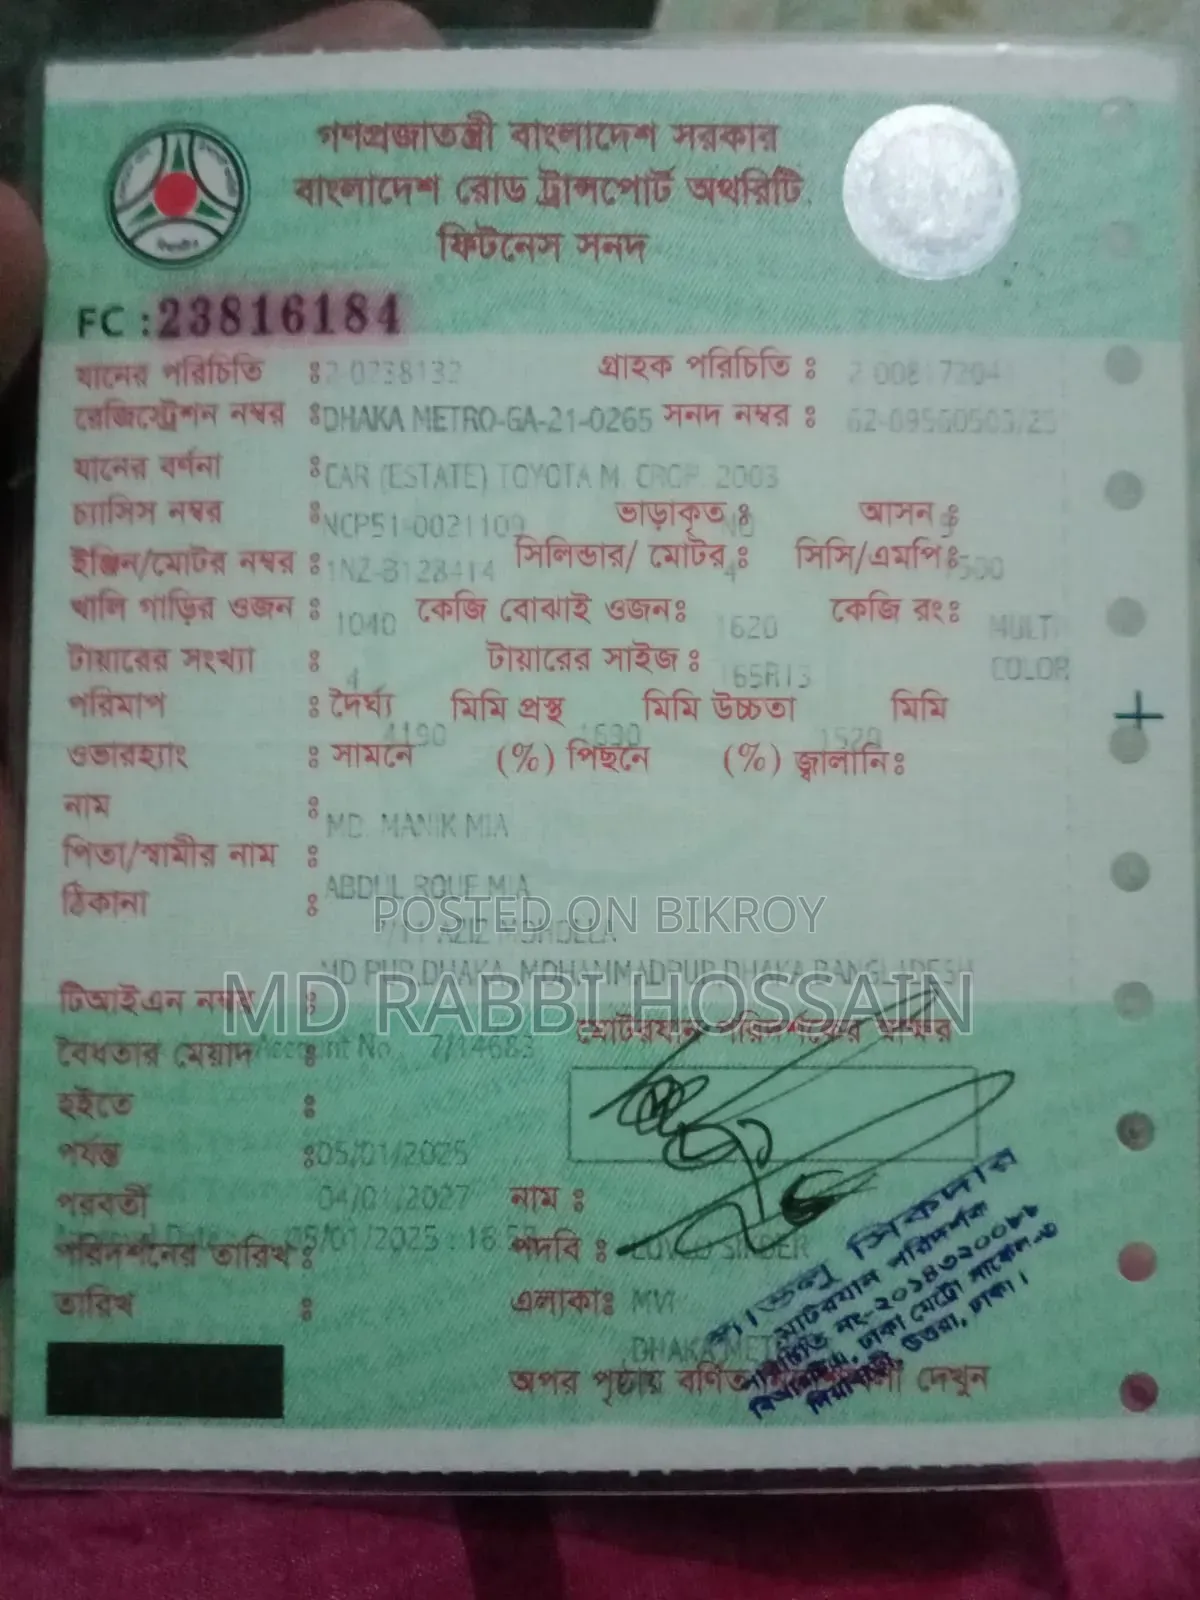 গণপ্রজাতন্ত্রী বাংলাদেশ সরকার
বাংলাদেশ রোড ট্রান্সপোর্ট অথরিটি
ফিটনেস সনদ
FC : 23816184
যানের পরিচিতি : 2-0238132 গ্রাহক পরিচিতি :
রেজিস্ট্রেশন নম্বর : DHAKA METRO-GA-21-0265 সনদ নম্বর :
যানের বর্ণনা : CAR (ESTATE) TOYOTA M. 2003
চ্যাসিস নম্বর : NCP51-0021109 ভাড়াকৃত : NO আসন :
ইঞ্জিন/মোটর নম্বর : 1NZ-B128414 সিলিন্ডার/ মোটর : 4 সিসি/এমপি : 1500
খালি গাড়ির ওজন : 1040 কেজি বোঝাই ওজন : 1620 কেজি রং : MULTI COLOR
টায়ারের সংখ্যা : 4 টায়ারের সাইজ : 165R13
পরিমাপ : দৈর্ঘ্য 4190 মিমি প্রস্থ 1690 মিমি উচ্চতা 1520 মিমি
ওভারহ্যাং : সামনে (%) পিছনে (%) জ্বালানি :
নাম : MD. MANIK MIA
পিতা/স্বামীর নাম : ABDUL ROUF MIA
ঠিকানা : 7/11 AZIZ MOHOLLA
MD PUR,DHAKA, MOHAMMADPUR,DHAKA,BANGLADESH
POSTED ON BIKROY
MD RABBI HOSSAIN
টিআইএন নম্বর :
মোটরযান পরিদর্শকের স্বাক্ষর
বৈধতার মেয়াদ : Account No. 7/14683
হইতে :
পর্যন্ত : 05/01/2025
পরবর্তী 04/01/2027 নাম :
পরিদর্শনের তারিখ : 05/01/2025 : পদবি :
তারিখ : এলাকা : MVI
DHAKA METRO
অপর পৃষ্ঠায় বর্ণিত দেখুন
সিকদার
মোটরযান পরিদর্শক